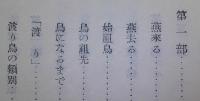 第一部
燕来る……
燕去る……
始祖鳥……
鳥の祖先……
鳥になるまで……
「渡り」……
渡り鳥の類別……